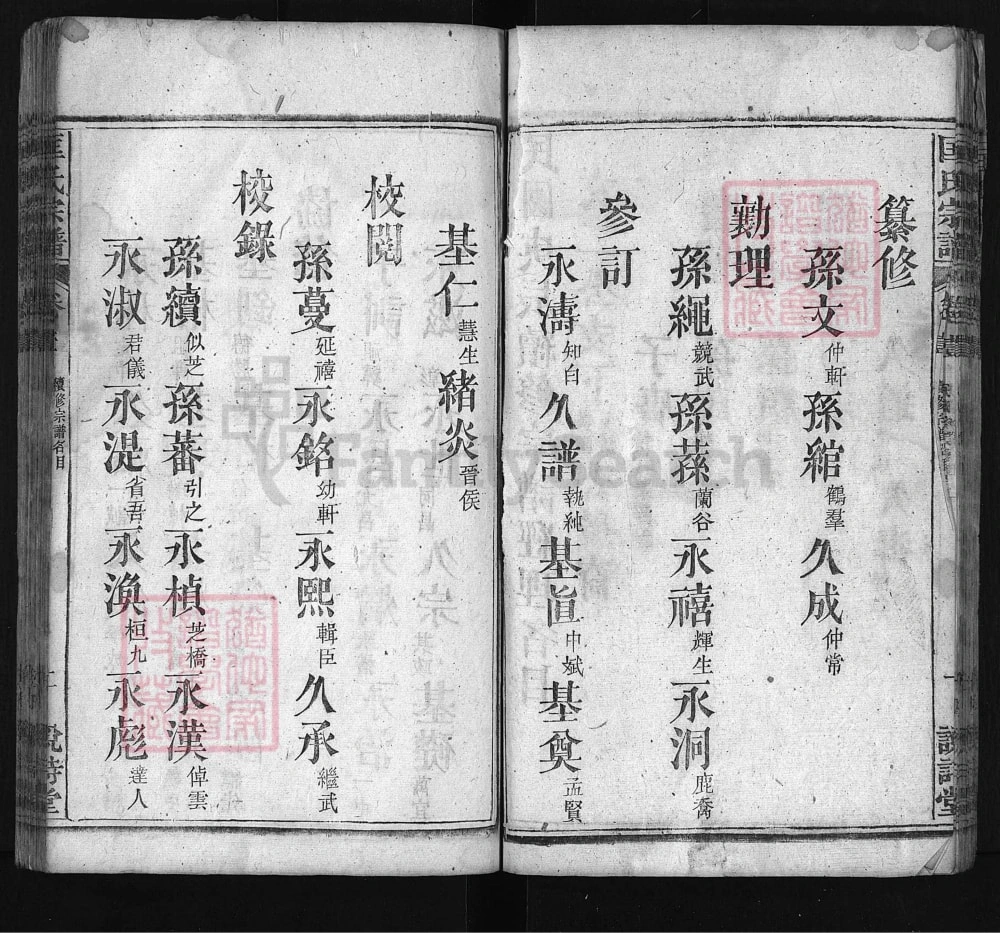 纂修
孫文仲軒 孫綰鶴羣 久成仲常
勷理
孫繩競武 孫蓀蘭谷 永禧輝生 永洞鹿喬
參訂
永濤知白 久譜執純 基眞中斌 基奠孟賢
匡氏宗譜
說詩堂
基仁慧生 緒炎晉侯
校閱
孫蔓延禧 永銘幼軒 永熙輯臣 久承繼武
校錄
孫續似芝 孫蕃引之 永楨芝橋 永漢倬雲
永淑君儀 永湜省吾 永渙桓九 永彪達人
匡氏宗譜 續修宗譜名目 說詩堂
FamilySearch